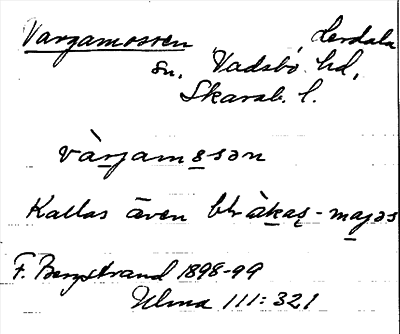 Vargamossen Herdala
sn. Vadsbo hd,
Skarab. l.
vàrjamɘsɘn
Kallas även blràkaş-majɘs
F. Bergstrand 1898-99
Ulma 111:321